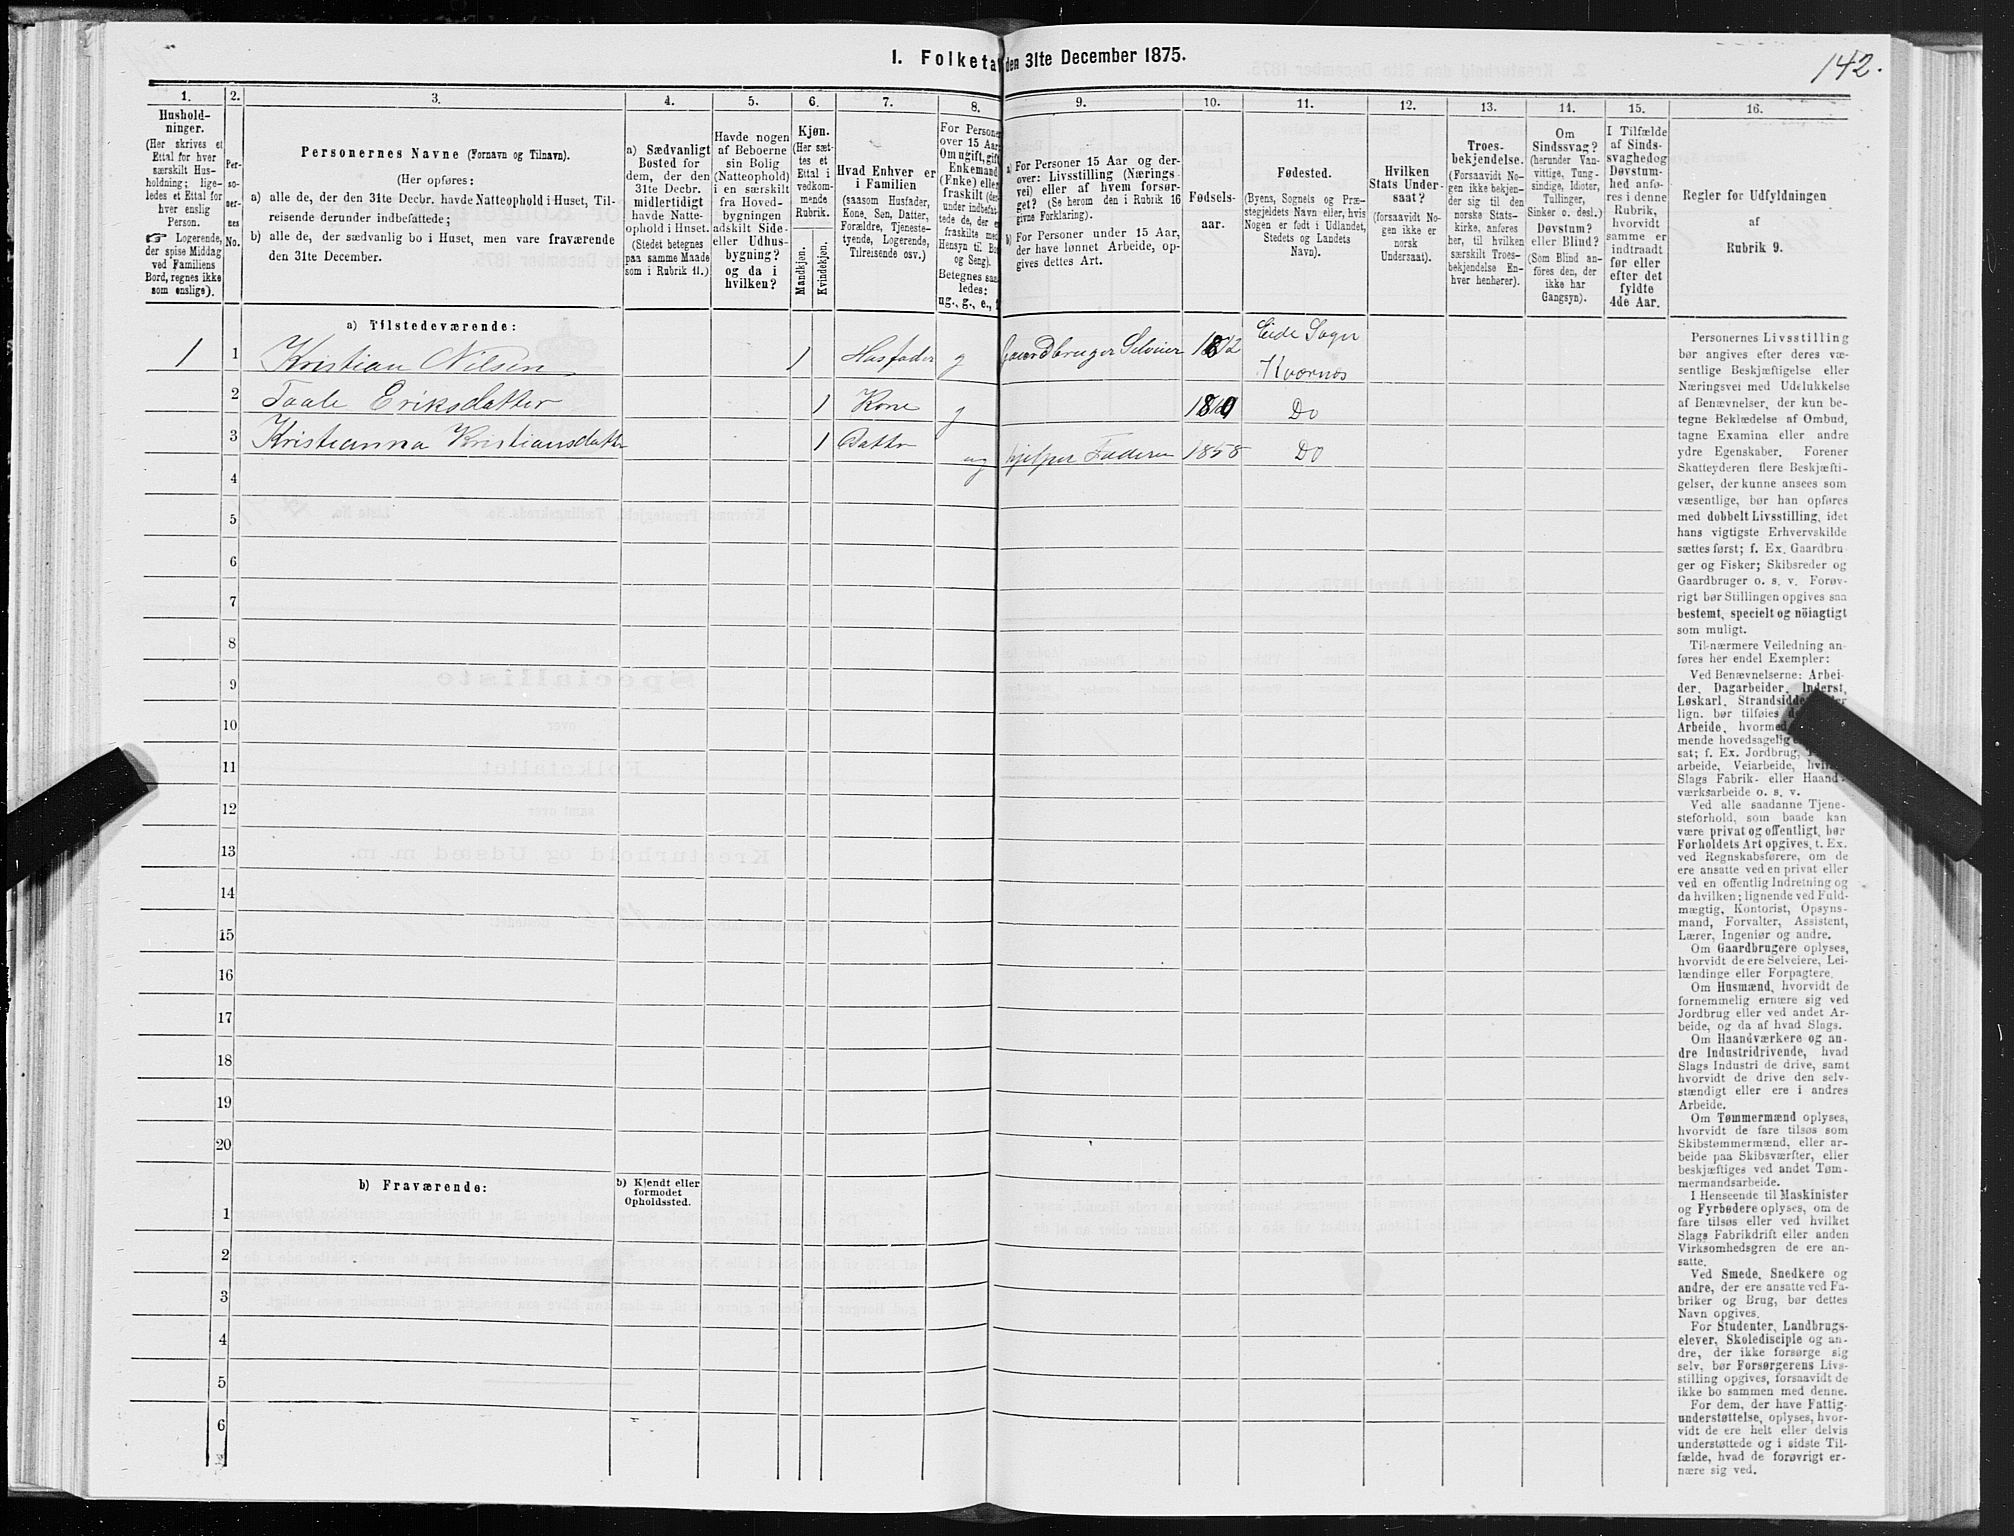 142.
1. Folketa den 31te December 1875.
1. 2. 3. 4. 5. 6. 7. 8. 9. 10. 11. 12. 13. 14. 15. 16.
Hushold-
ninger.
(Her skrives et
Ettal for hver
særskilt Hus-
holdning; lige-
ledes et Ettal for
hver enslig
Person.
☞ Logerende,
der spise Middag
ved Familiens
Bord, regnes ikke
som enslige).
Per-
so-
ner-
nes
No.
Personernes Navne (Fornavn og Tilnavn).
(Her opføres:
a) alle de, der den 31te Decbr. havde Natteophold i Huset, Til-
reisende derunder indbefattede;
b) alle de, der sædvanlig bo i Huset, men vare fraværende
den 31te December.
a) Sædvanligt
Bosted for
dem, der den
31te Decbr.
midlertidigt
havde Natte-
ophold i Huset.
(Stedet betegnes
paa samme Maade
som i Rubrik 11.)
Havde nogen
af Beboerne
sin Bolig
(Natteophold)
i en særskilt
fra Hoved-
bygningen
adskilt Side-
eller Udhus-
bygning?
og da i
hvilken?
Kjøn.
(Her sæt-
tes et
Ettal i
vedkom-
mende
Rubrik.
Mandkjøn.
Kvindekjøn.
Hvad Enhver er
i Familien
(saasom Husfader,
Kone, Søn, Datter,
Forældre, Tjeneste-
tyende, Logerende,
Tilreisende osv.)
For Persone
over 15 Aar
Om ugift, gift
Enkemand
(Enke) elle
fraskilt (der
under indbefat
tede de, der e
fraskilte med
Hensyn til Bo
og Seng).
Betegnes saa
ledes:
ug., g., e., f
a) For Personer 15 Aar og der-
over: Livsstilling (Nærings-
vei) eller af hvem forsør-
get? (Se herom den i Rubrik 16
givne Forklaring).
b) For Personer under 15 Aar,
der have lønnet Arbeide, op-
gives dettes Art.
Fødsels-
aar.
Fødested.
(Byens, Sognets og Præ-
stegjeldets Navn eller, hvis
Nogen er født i Udlandet,
Stedets og Landets
Navn).
Hvilken
Stats Under-
saat?
(forsaavidt No-
gen ikke er
norsk
Undersaat).
Troes-
bekjendelse.
(Forsaavidt No-
gen ikke bekjen-
der sig til den
norske Stats-
kirke, anføres
her, til hvilken
særskilt Troes-
bekjendelse En-
hver henhører).
Om
Sindssvag?
(herunder Van-
vittige, Tung-
sindige, Idioter,
Tullinger,
Sinker o. desl.)
Døvstum?
eller Blind?
(Som Blind an-
føres den, der
ikke har
Gangsyn).
I Tilfælde
af Sinds-
svaghed og
Døvstum-
hed anfø-
res i denne
Rubrik,
hvorvidt
samme er
indtraadt
før eller
efter det
fyldte
4de Aar.
Regler for Udfyldningen
af
Rubrik 9.
a) Tilstedeværende:
1 1 Kristian Nilsen 1 Husfader g Gaardbruger Selveier 1812 Eide Sogn
Kværnes
2 Eriksdatter 1 Kone g Do
3 Kristianna Kristiansdatter 1 Datter ug hjelper Faderen 1858 Do
4
5
6
7
8
9
10
11
12
13
14
15
16
17
18
19
20
b) Fraværende:
b) Kjendt eller
formodet
Opholdssted.
1
2
3
4
5
6
Personernes Livsstilling
bør angives efter deres væ-
sentlige Beskjæftigelse eller
Næringsvei med Udelukkelse
af Benævnelser, der kun be-
tegne Beklædelse af Ombud,
tagne Examina eller andre
ydre Egenskaber. Forener
Skatteyderen flere Beskjæfti-
gelser, der kunne ansees som
væsentlige, bør han opføres
med dobbelt Livsstilling, idet
hans vigtigste Erhvervskilde
sættes først; f. Ex. Gaardbru-
ger og Fisker; Skibsreder og
Gaardbruger o. s. v. Forøv-
rigt bør Stillingen opgives saa
bestemt, specielt og nöiagtigt
som muligt.
Til nærmere Veiledning an-
føres her endel Exempler:
Ved Benævnelserne: Arbei-
der, Dagarbeider, Inderst,
Løskarl, Strandsidde
lign. bør tilføies
Arbeide, hvormed
mende hovedsagelig
sat; f. Ex. Jordbrug,
arbeide, Veiarbeide,
Slags Fabrik- eller Haand-
værksarbeide o. s. v.
Ved alle saadanne Tjene-
steforhold, som baade kan
være privat og offentligt, bør
Forholdets Art opgives, f. Ex.
ved Regnskabsførere, om de
ere ansatte ved en privat eller
ved en offentlig Indretning og
da hvilken; lignende ved Fuld-
mægtig, Kontorist, Opsyns-
mand, Forvalter, Assistent,
Lærer, Ingeniør og andre.
Om Gaardbrugere oplyses,
hvorvidt de ere Selveiere, Lei-
lændinge eller Forpagtere.
Om Husmænd, hvorvidt de
fornemmelig ernære sig ved
Jordbrug eller ved andet Ar-
beide, og da af hvad Slags.
Om Haandværkere og an-
dre Industridrivende, hvad
Slags Industri de drive, samt
hvorvidt de drive den selv-
stændigt eller ere i andres
Arbeide.
Om Tømmermænd oplyses,
hvorvidt de fare tilsøs som
Skibstømmermænd, eller ar-
beide paa Skibsværfter, eller
beskjæftiges ved andet Tøm-
mermandsarbeide.
I Henseende til Maskinister
og Fyrbødere oplyses, om de
fare tilsøs eller ved hvilket
Slags Fabrikdrift eller anden
Virksomhedsgren de ere an-
satte.
Ved Smede, Snedkere og
andre, der ere ansatte ved Fa-
briker og Brug, bør dettes
Navn opgives.
For Studenter, Landbrugs-
elever, Skoledisciple og an-
dre, der ikke forsørge sig
selv, bør Forsørgerens Livs-
stilling opgives, forsaavidt de
ikke bo sammen med denne.
For dem, der have Fattig-
understøttelse, oplyses, hvor-
vidt de ere helt eller delvis
understøttede og i sidste Til-
fælde, hvad de forøvrigt er-
nære sig ved.